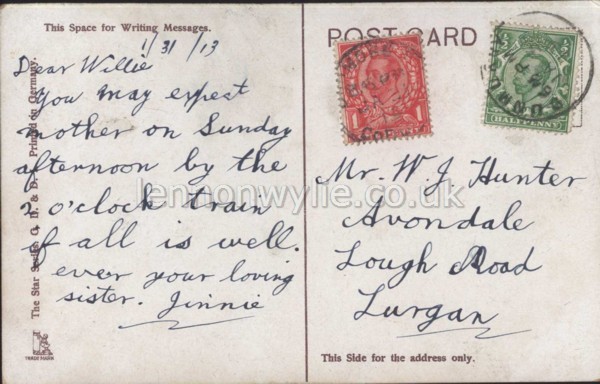 This Space for Writing Messages.
1/31/13
Dear Willie
You may expect
mother on Sunday
afternoon by the
2 o'clock train
if all is well.
ever your loving
sister. Jinnie
The Star Series G. D. & D. Printed on Germany.
TRADE MARK
POST CARD
1
½
HALFPENNY
Mr. W. J. Hunter
Avondale
Lough Road
Lurgan
This Side for the address only.
lennonwylie.co.uk